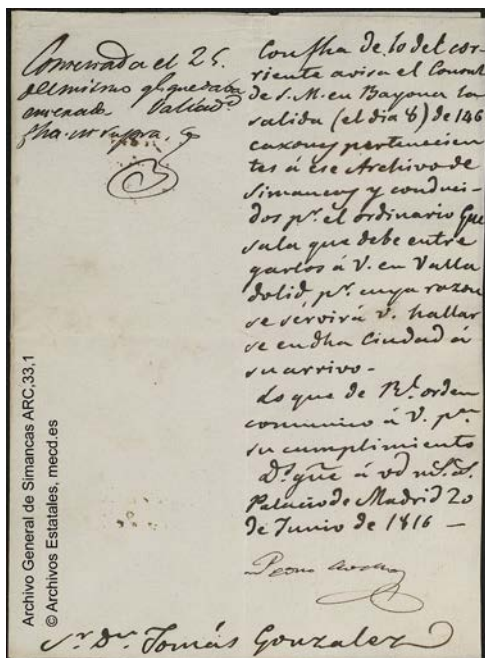 Contextada el 25.
del mismo qe quedaba
enterado Vallad.d
fha. ut supra.
Con fha de 10 del cor-
riente avisa el Consul
de S. M. en Bayona la
salida (el dia 8) de 146
caxones pertenecien
tes á ese Archivo de
Simancas y conduci-
dos pr. el ordinario Que
sala que debe entre
garlos á V. en Valla
dolid, pr. cuya razon
se servirá V. hallar
se en dha Ciudad á
su arrivo.-
Lo que de Rl. orden
comunico á V. pa.
su cumplimiento
Ds. gue á vd ms. as.
Palacio de Madrid 20
de Junio de 1816 —
Pedro
Sr. Dn. Tomás Gonzalez
Archivo General de Simancas ARC,33,1
© Archivos Estatales, mecd.es